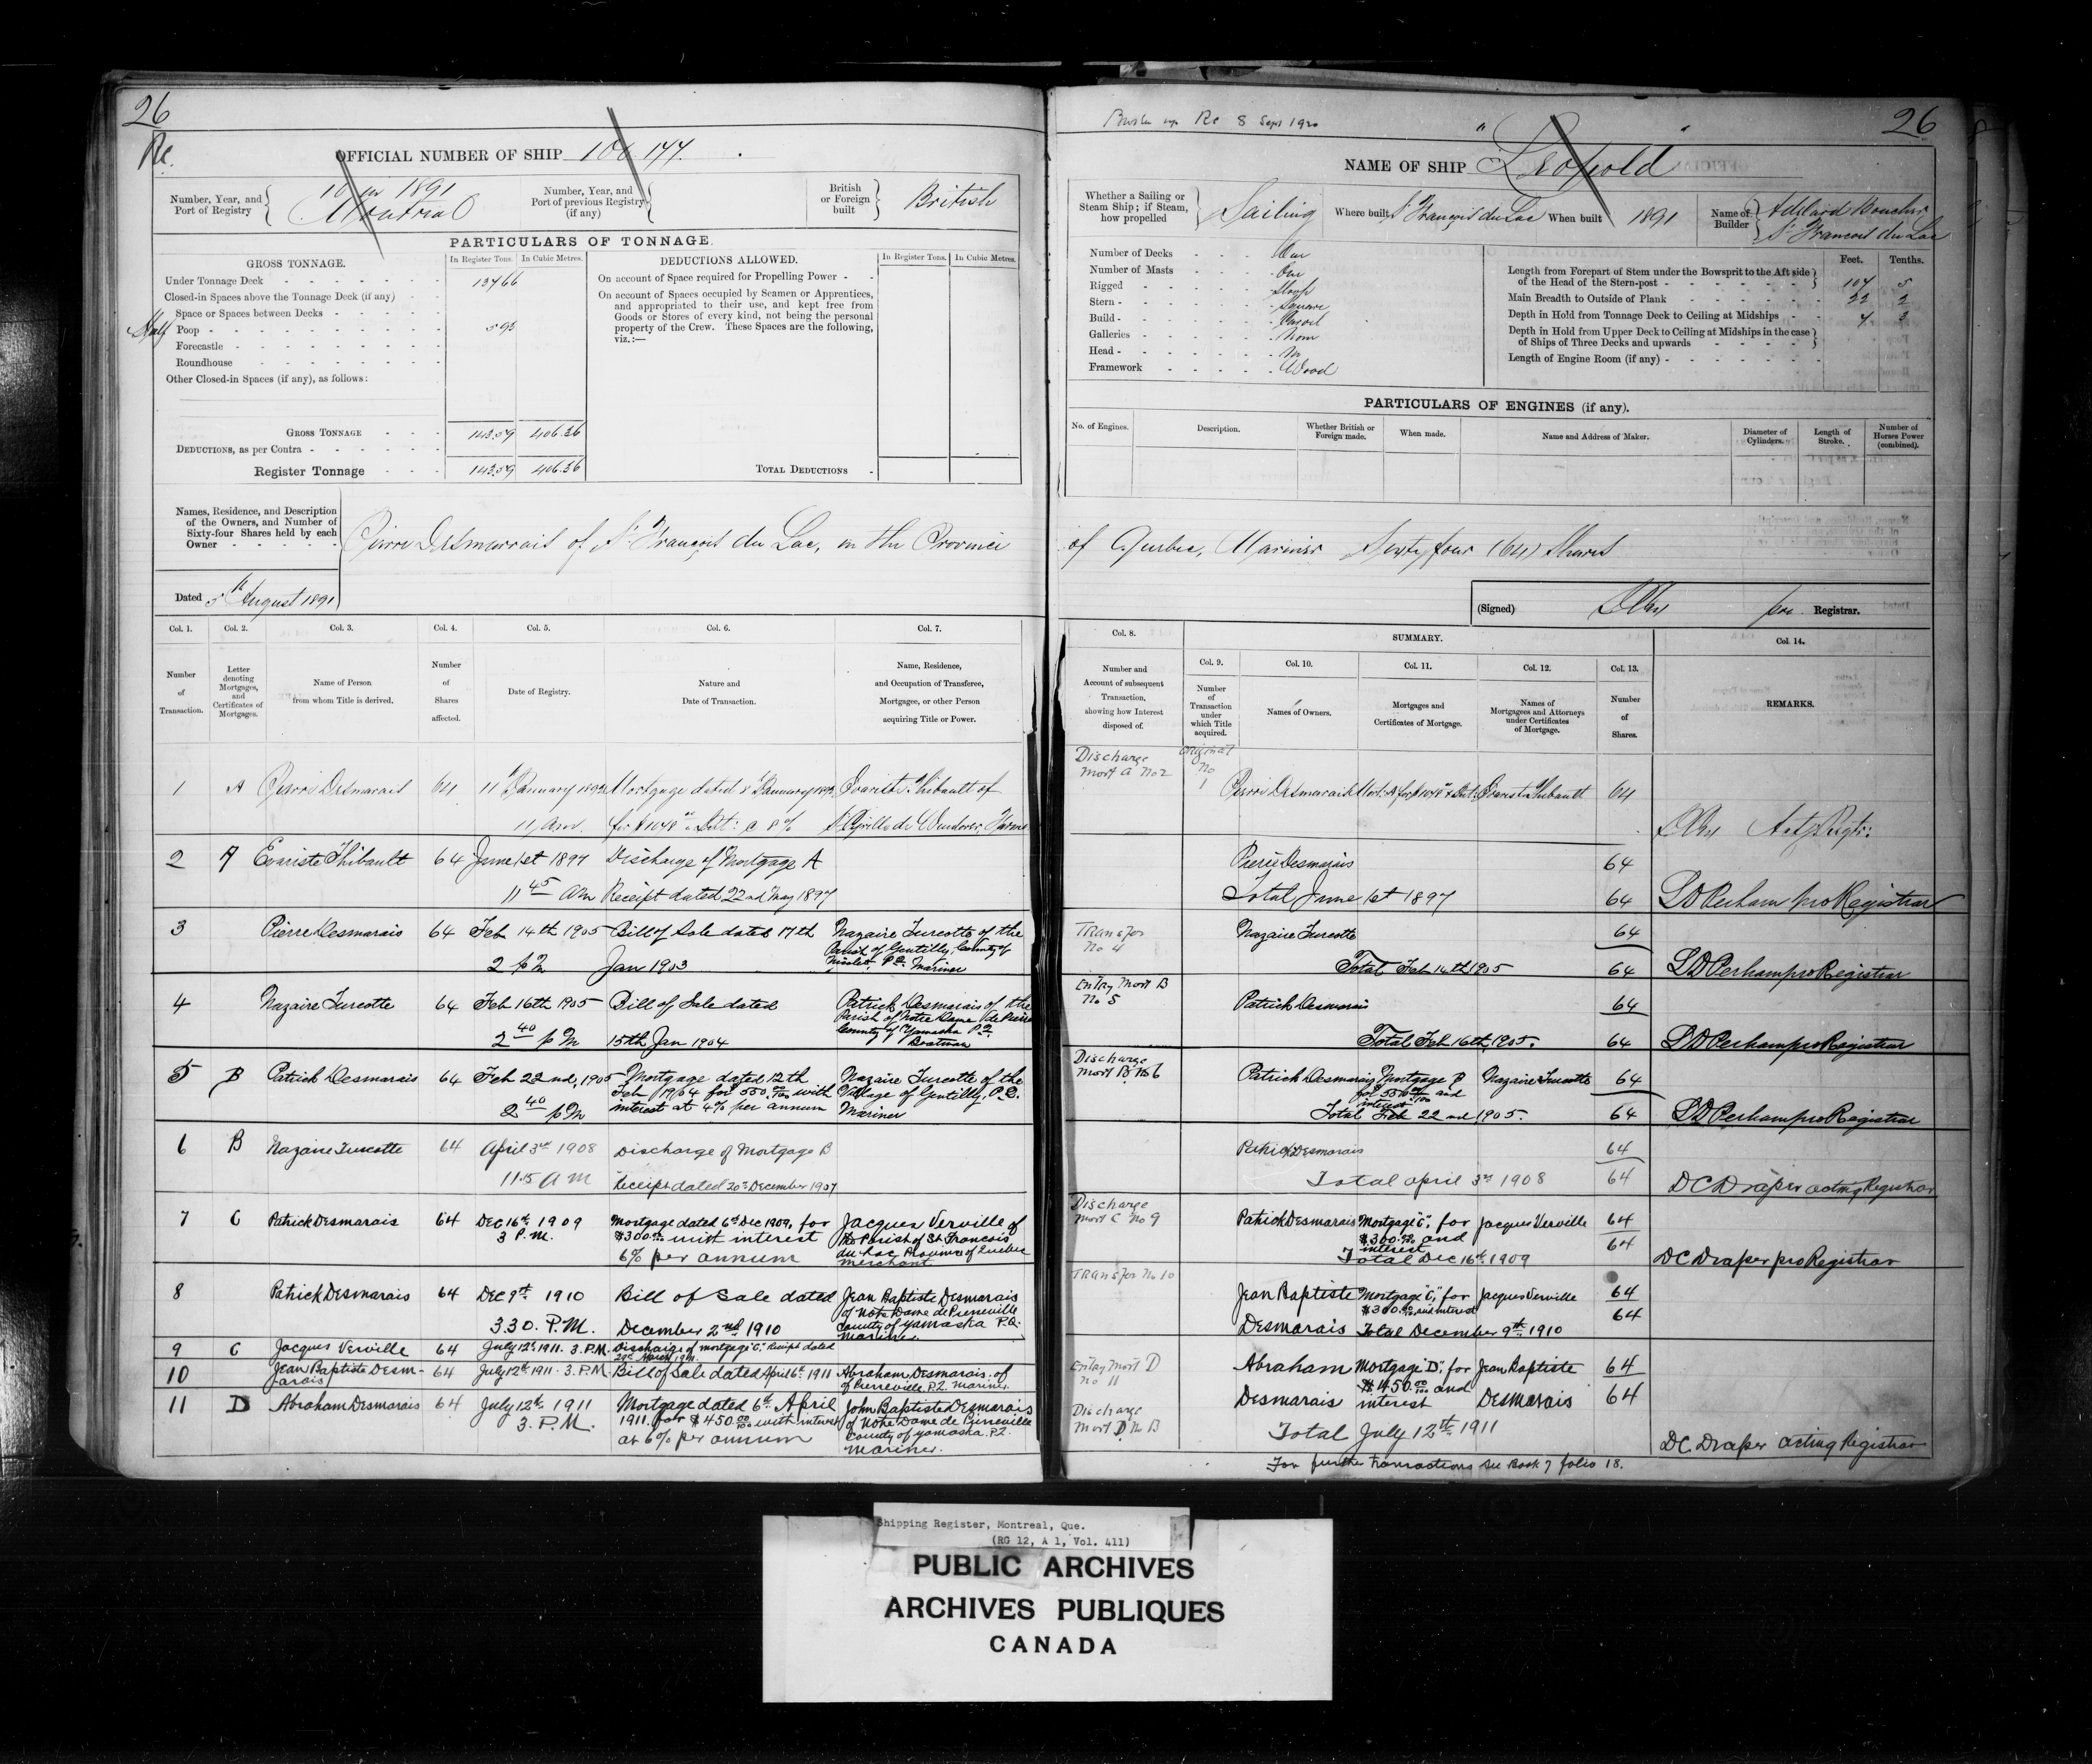 26
Re.
OFFICIAL NUMBER OF SHIP
Number, Year, and
Port of Registry
10 in 1891
Montreal
Number, Year, and
Port of previous Registry
(if any)
British
or Foreign
built
British
PARTICULARS OF TONNAGE.
GROSS TONNAGE.
In Register Tons.
In Cubic Metres.
DEDUCTIONS ALLOWED.
In Register Tons.
In Cubic Metres.
Under Tonnage Deck
137.66
On account of Space required for Propelling Power
Closed-in Spaces above the Tonnage Deck (if any)
On account of Spaces occupied by Seamen or Apprentices,
and appropriated to their use, and kept free from
Goods or Stores of every kind, not being the personal
property of the Crew. These Spaces are the following,
viz.:—
Space or Spaces between Decks
Half Poop
5.93
Forecastle
Roundhouse
Other Closed-in Spaces (if any), as follows:
GROSS TONNAGE 143.59 406.36
DEDUCTIONS, as per Contra
Register Tonnage 143.59 406.36
TOTAL DEDUCTIONS
Names, Residence, and Description
of the Owners, and Number of
Sixty-four Shares held by each
Owner
Pierre Desmarrais of St François du Lac, in the Province
Dated 5th August 1891
Col. 1. Col. 2. Col. 3. Col. 4. Col. 5. Col. 6. Col. 7.
Number
of
Transaction.
Letter
denoting
Mortgages,
and
Certificates of
Mortgages.
Name of Person
from whom Title is derived.
Number
of
Shares
affected.
Date of Registry.
Nature and
Date of Transaction.
Name, Residence,
and Occupation of Transferee,
Mortgagee, or other Person
acquiring Title or Power.
1 A Pierre Desmarais 64 11 January 1892 Mortgage dated 8 January 1892 Evariste Thibault of
11 A.M. for $1048 Int: @ 8% St Cyrille de Wendover, Farmer
2 A Evariste Thibault 64 June 1st 1897 Discharge of Mortgage A
11 45 am Receipt dated 22nd May 1897
3 Pierre Desmarais 64 Feb 14th 1905 Bill of Sale dated 17th Nazaire Turcotte of the
Parish of Gentilly, County of
2 PM Jan 1903 Nicolet, P.Q. Mariner
4 Nazaire Turcotte 64 Feb 16th 1905 Bill of Sale dated Patrick Desmarais of the
Parish of Notre Dame de Pierre
County of Yamaska P.Q.
2 40 PM 15th Jan 1904 Boatman
5 B Patrick Desmarais 64 Feb 22nd, 1905 Mortgage dated 12th Nazaire Turcotte of the
Feb 1904 for 550 00/100 with Village of Gentilly, P.Q.
2 40 PM interest at 4% per annum Mariner
6 B Nazaire Turcotte 64 April 3rd 1908 Discharge of Mortgage B
11.5 AM Receipt dated 20th December 1907
7 C Patrick Desmarais 64 Dec 16th 1909 Mortgage dated 6th Dec 1909, for Jacques Verville of
3 P.M. $300.00 with interest the Parish of St Francois
du Lac Province of Quebec
6% per annum merchant
8 Patrick Desmarais 64 Dec 9th 1910 Bill of Sale dated Jean Baptiste Desmarais
of Notre Dame de Pierreville
3 30. P.M. December 2nd 1910 County of Yamaska P.Q.
mariner.
9 C Jacques Verville 64 July 12th 1911. 3. P.M. Discharge of mortgage "C". Receipt dated
29th March 1911.
10 Jean Baptiste Desm-
arais 64 July 12th 1911. 3. P.M. Bill of Sale dated April 6th 1911 Abraham Desmarais. of
of Pierreville P.Q. Mariner.
11 D Abraham Desmarais 64 July 12th 1911 Mortgage dated 6th April John Baptiste Desmarais
3. P.M. 1911. for $450 00/100 with interest of Notre Dame de Pierreville
at 6% per annum County of Yamaska. P.Q.
Mariner.
Re 8 Sept 1920
26
NAME OF SHIP "Leopold"
Whether a Sailing or
Steam Ship; if Steam,
how propelled
Sailing
Where built St François du Lac When built 1891
Name of
Builder
Adelard Boucher
St Francois du Lac
Number of Decks One
Number of Masts One
Rigged Sloop
Stern Square
Build Carvel
Galleries None
Head No
Framework Wood
Feet. Tenths.
Length from Forepart of Stem under the Bowsprit to the Aft side
of the Head of the Stern-post 107 5
Main Breadth to Outside of Plank 22 2
Depth in Hold from Tonnage Deck to Ceiling at Midships 7 3
Depth in Hold from Upper Deck to Ceiling at Midships in the case
of Ships of Three Decks and upwards
Length of Engine Room (if any)
PARTICULARS OF ENGINES (if any).
No. of Engines.
Description.
Whether British or
Foreign made.
When made.
Name and Address of Maker.
Diameter of
Cylinders.
Length of
Stroke.
Number of
Horses Power
(combined).
of Quebec, Mariner Sixty four (64) Shares
(Signed)
pro Registrar.
Col. 8.
SUMMARY.
Col. 14.
Col. 9. Col. 10. Col. 11. Col. 12. Col. 13.
Number and
Account of subsequent
Transaction,
showing how Interest
disposed of.
Number
of
Transaction
under
which Title
acquired.
Names of Owners.
Mortgages and
Certificates of Mortgage.
Names of
Mortgagees and Attorneys
under Certificates
of Mortgage.
Number
of
Shares.
REMARKS.
Discharge
Mort A No 2
Original
No
1
Pierre Desmarais Mort: A for $1048 & Int: Evariste Thibault 64
Actg Regtr:
Pierre Desmarais 64
Total June 1st 1897 64 LD Perham pro Registrar
Transfer
No 4
Nazaire Turcotte 64
Total Feb 14th 1905 64 LD Perham pro Registrar
Entry Mort B
No 5
Patrick Desmarais 64
Total Feb 16th, 1905. 64 LD Perham pro Registrar
Discharge
Mort B No 6
Patrick Desmarais Mortgage B Nazaire Turcotte 64
for 550 00/100 and
interest
Total Feb 22nd 1905. 64 LD Perham pro Registrar
Patrick Desmarais 64
Total april 3rd 1908 64 DC Draper acting Registrar
Discharge
Mort C No 9
Patrick Desmarais Mortgage "C", for Jacques Verville 64
$300.00 and
interest 64
Total Dec 16th 1909 DC Draper pro Registrar
Transfer No 10
Jean Baptiste Mortgage "C", for Jacques Verville 64
$300.00 and interest
Desmarais Total December 9th 1910 64
Entry Mort D
No 11
Abraham Mortgage "D", for Jean Baptiste 64
$450.00 and
Desmarais interest Desmarais 64
Discharge
Mort D No 13
Total July 12th 1911
DC. Draper acting Registrar
For further transactions see Book 7 folio 18.
Shipping Register, Montreal, Que.
(RG 12, A 1, Vol. 411)
PUBLIC ARCHIVES
ARCHIVES PUBLIQUES
CANADA